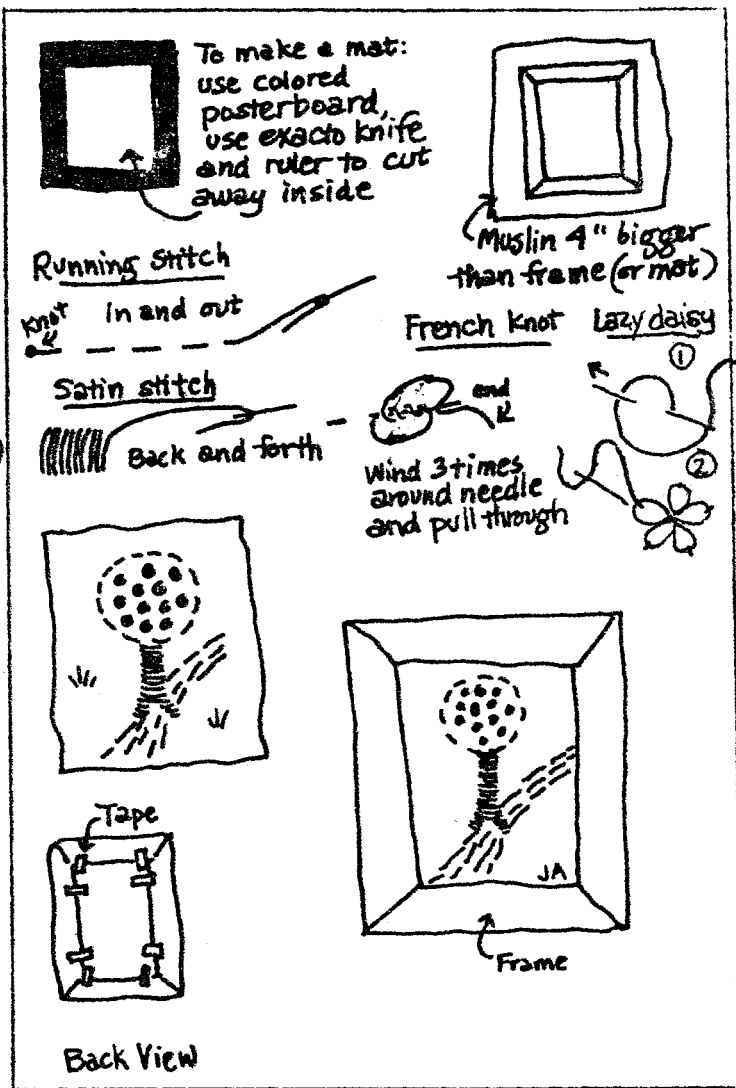 To make a mat:
use colored
posterboard,
use exacto knife
and ruler to cut
away inside
Muslin 4" bigger
than frame (or mat)
Running Stitch
Knot
In and out
French Knot
Lazy daisy
1
2
Satin stitch
Back and forth
end
Wind 3 times
around needle
and pull through
JA
Frame
Tape
Back View